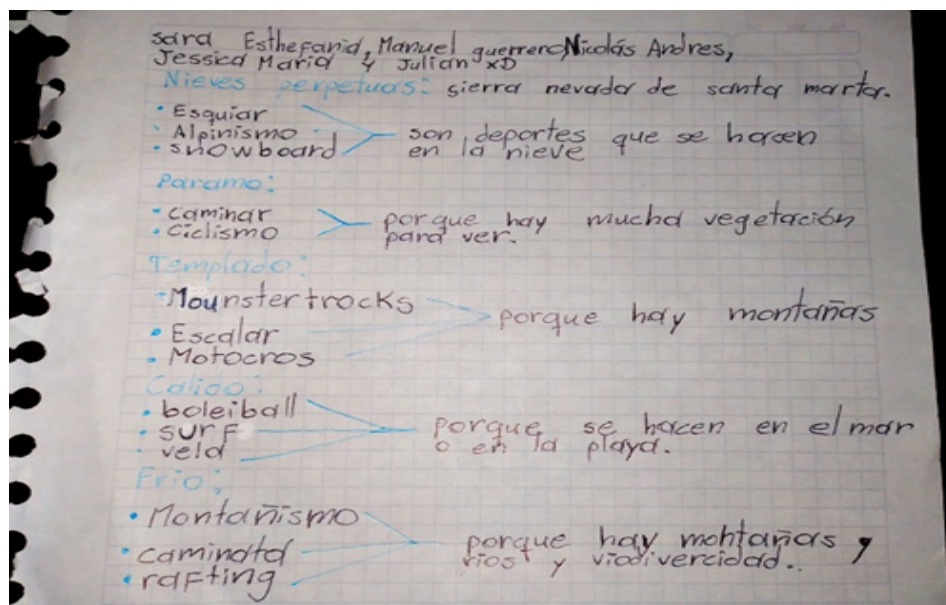 Sara Esthefania, Manuel guerrero, Nicolás Andres,
Jessica Maria y Julian xD
Nieves perpetuas: sierra nevada de santa marta.
• Esquiar
• Alpinismo
• snowboard
son deportes que se hacen
en la nieve
Paramo:
• Caminar
• Ciclismo
porque hay mucha vegetación
para ver.
Templado:
• Mounstertrocks
• Escalar
• Motocros
porque hay montañas
Calido:
• boleiball
• surf
• vela
porque se hacen en el mar
o en la playa.
Frio;
• Montañismo
• caminata
• rafting
porque hay montañas y
rios y viodivercidad..